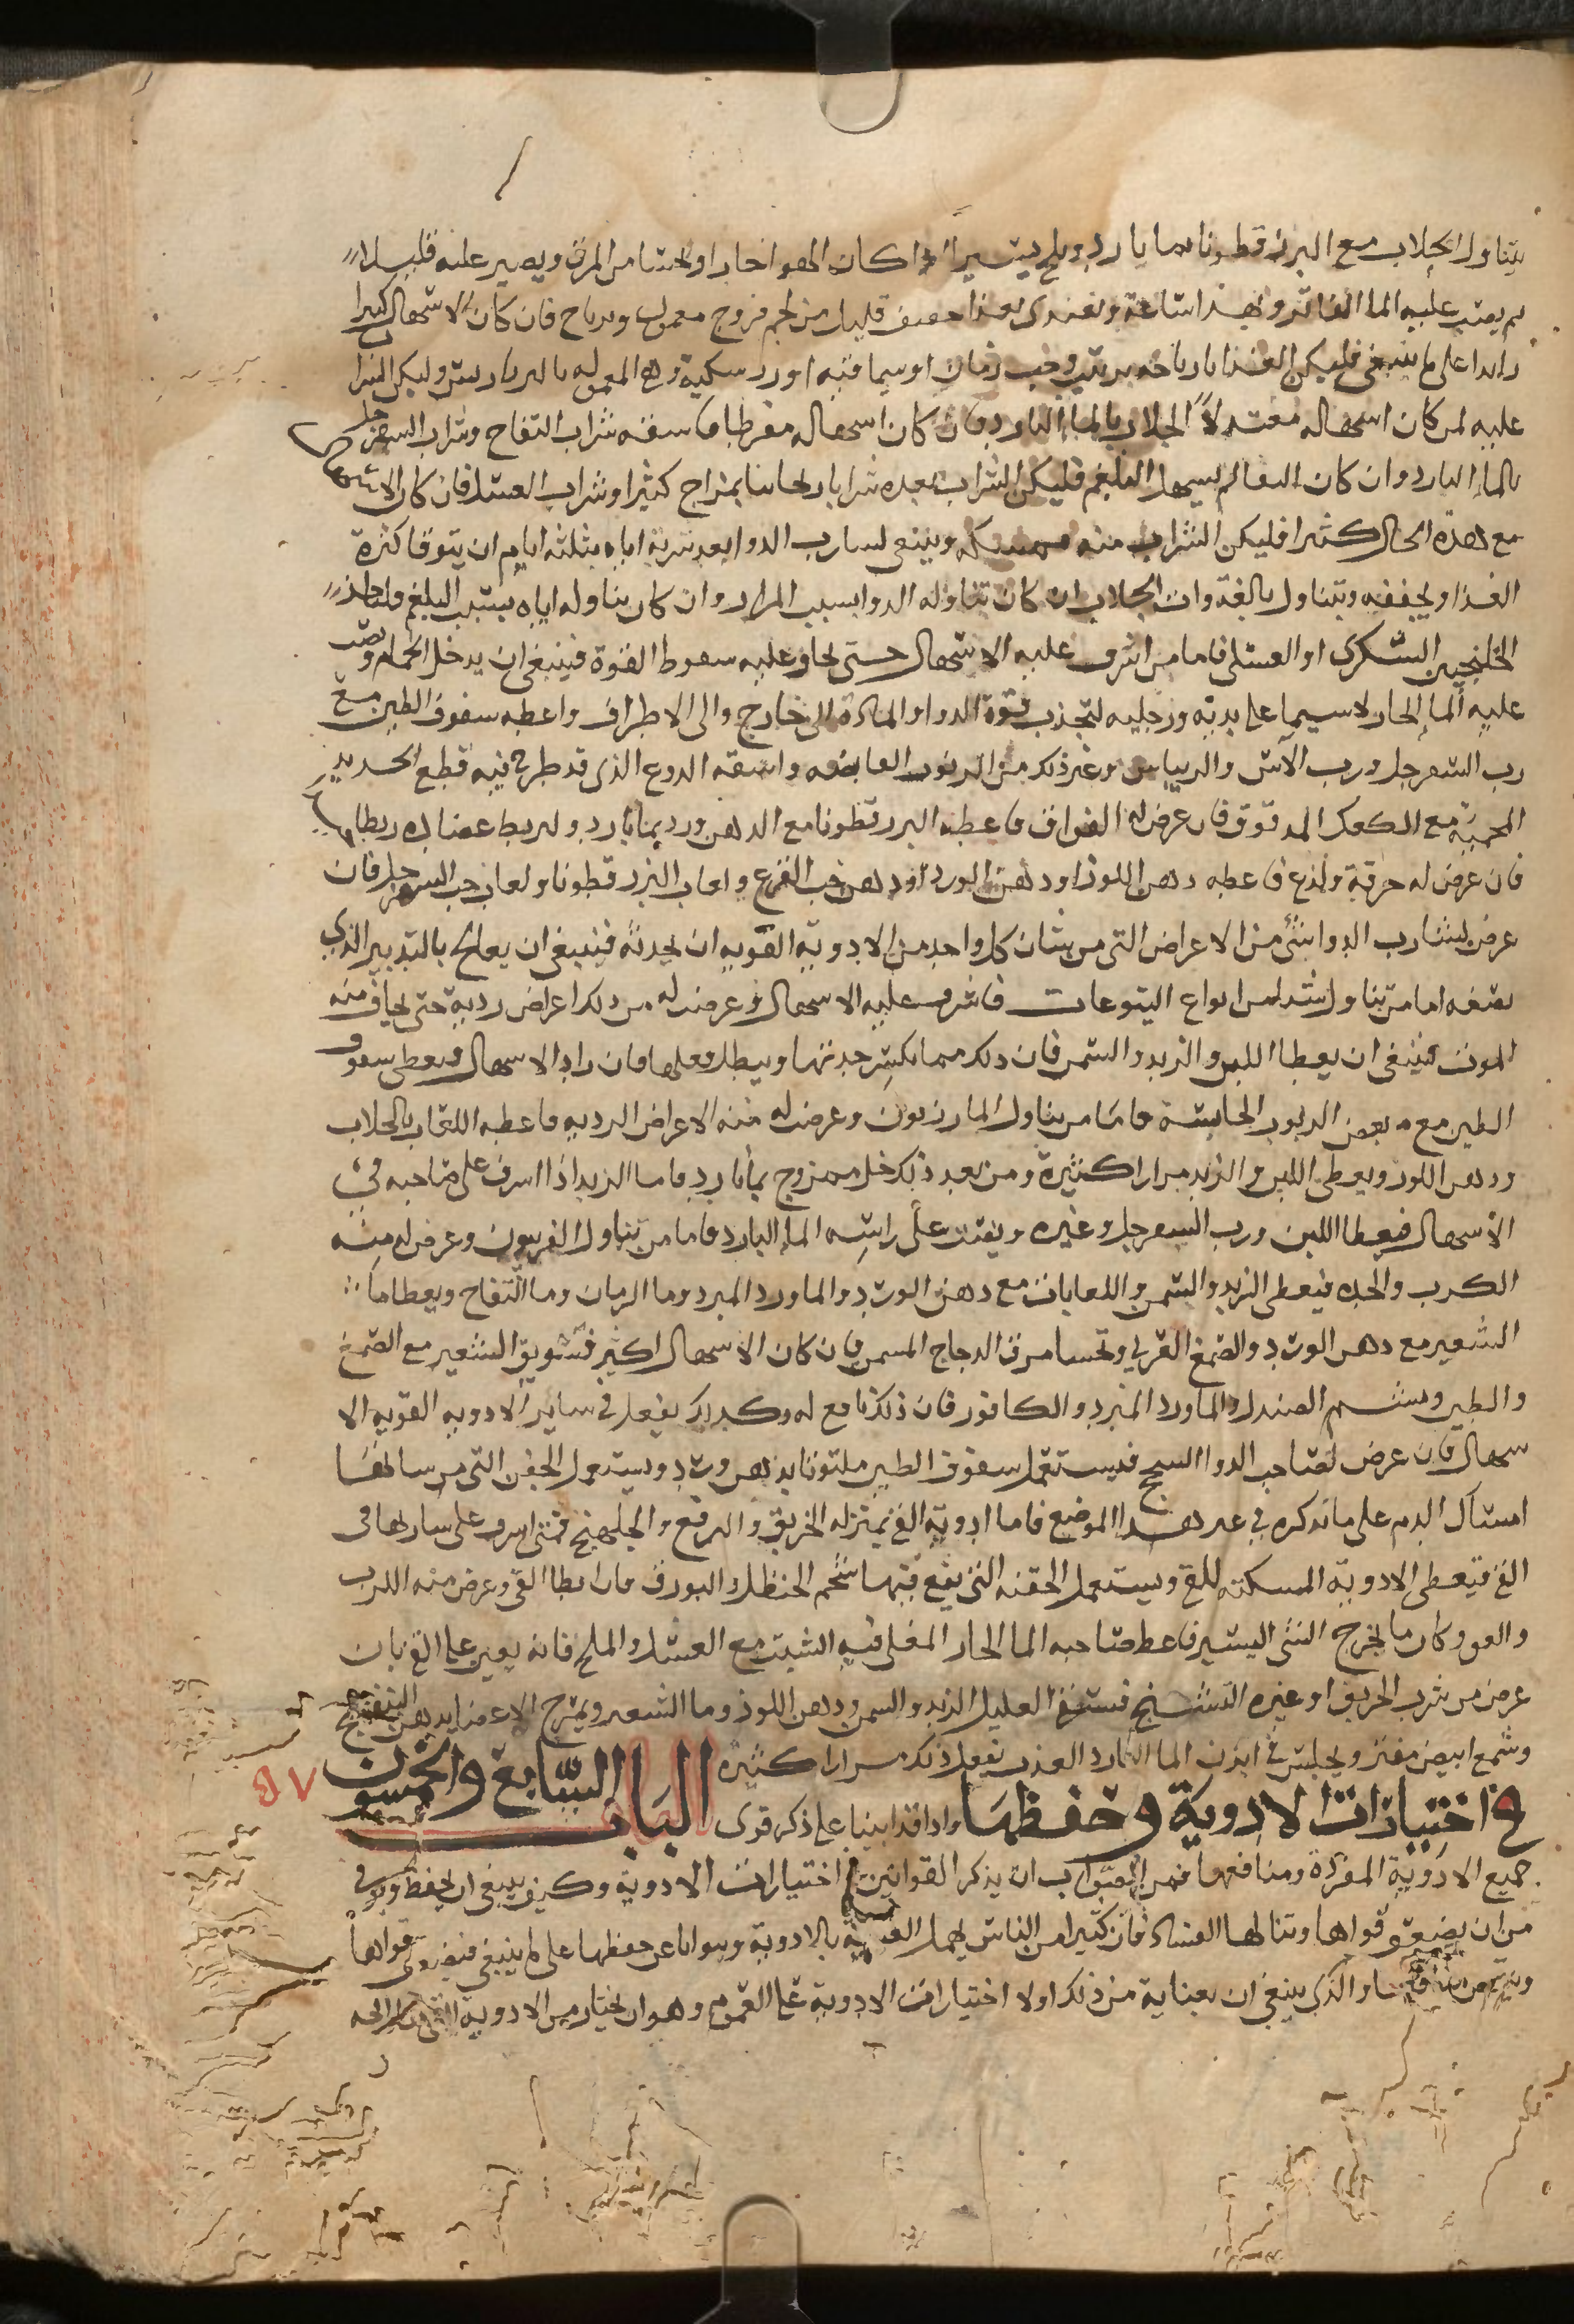 يتناول الجلاب مع البزر قطونا بما بارد وبلح يسيرا اذا كان الهوا حارا او يحتسا من المرق ويصير عليه قليلا
ثم يصب عليه الما الفاتر ويهدا ساعة ويغتدى بغذا خفيف قليل من لحم فروج معمول زيرباج فان كان الاسهال كثيرا
زايدا على ما ينبغي فليكن الغذا رمان او سماقيه او المعموله بالبرباريس وليكن الشرا
عليه لمن كان اسهاله معتدلا الجلاب بالما البارد فان كان اسهاله مفرطا فاسقه شراب التفاح وشراب السفرجل
بالما البارد وان كان انما لم يسهل البلغم فليكن الشراب بعده شرابا ريحانيا بمزاج كثير او شراب العسل فان كان الاسهال
مع هذه الحال كثيرا فليكن الشراب منه ممسكه وينبغي لشارب الدوا بعد شربه اياه بثلثه ايام ان يتوقا كثرة
الغذا ويخففه ويتناول بالغدوات الجلاب ان كان تناوله الدوا بسبب المرار وان كان تناوله اياه بسبب البلغم فلياخذ
الخلنجبين السكرى او العسلى فاما من اشرف عليه الاسهال حتى يخاف عليه سقوط القوة فينبغي ان يدخل الحمام ويصب
عليه الما الحار لا سيما على يديه ورجليه لتجذب قوة الدوا والمادة الى خارج والى الاطراف واعطه سفوف الطين مع
رب السفرجل ورب الآس والريباس وغير ذلك من الربوب القابضه واسقه الدوغ الذى قد طرح فيه قطع الحديد
المحميه مع الكعك المدقوق فان عرض له الفواق فاعطه البزر قطونا مع الدهن ورد بما بارد ولتربط عضاده ربطا
فان عرض له حرقة ولذع فاعطه دهن اللوز او دهن الورد او دهن حب القرع ولعاب البزر قطونا ولعاب حب السفرجل فان
عرض لشارب الدوا شئ من الاعراض التى من شان كل واحد من الادوية القويه ان يحدثه فينبغي ان يعالج بالتدبير الذي
نصفه اما من تناول شيا من انواع اليتوعات فاشرف عليه الاسهال وعرض له من ذلك اعراض رديه حتى يخاف منه
الموت فينبغي ان يعطا اللبن والزبد والسمن فان ذلك مما يكسر حدتها ويبطل فعلها فان زاد الاسهال فيعطى سفوف
الطين مع بعض الربوب الحابسة فاما من تناول المازريون وعرض له منه الاعراض الرديه فاعطه اللعاب بالجلاب
ودهن اللوز ويعطى اللبن والزبد مرارا كثيرة ومن بعد ذلك خل ممزوج بما بارد فاما الزبد اذا اسرف على صاحبه في
الاسهال فيعطا اللبن ورب السفرجل وغيره ويصب على راسه الما البارد فاما من تناول الفربيون وعرض له منه
الكرب والحده فيعطى الزبد والسمن واللعابات مع دهن الورد والماورد المبرد وما الرمان وما التفاح ويعطا ما
الشعير مع دهن الورد والصمغ العربي ويحسا مرق الدجاج المسمن فان كان الاسهال اكثير فسويق الشعير مع الصمغ
والطين ويشم الصندل والماورد المبرد والكافور فان ذلك نافع له وكذلك يفعل في ساير الادويه القويه الا
سهال فان عرض لصاحب الدوا السحج فيستعمل سفوف الطين ملتوتا بدهن ورد ويستعمل الحقن التى من شانها
امساك الدم على ما نذكره في غير هذا الموضع فاما ادوية القئ بمنزله الخربق والرقع والجلبهنج فمتى اسرف على شاربها في
القئ فيعطى الادوية المسكنه للقئ ويستعمل الحقنه التي يقع فيها شحم الحنظل والبورق فان ابطا القئ وعرض منه الكرب
والغم وكان ما يخرج الشئ اليسير فاعط صاحبه الما الحار المغلى فيه الشبت مع العسل والملح فانه يعين على القئ فان
عرض من شرب الخربق او غيره التشنج فيسقى العليل الزبد والسمن ودهن اللوز وما الشعير ويمرخ الاعضا بدهن البنفسج
وشمع ابيض مفتر ويجلس في ابزن الما العذب يفعل ذلك مرارا كثيره الباب السابع والخمسون
في اختيارات الادوية وحفظها واذا قد اتينا على ذكر قوى
٥٧
جميع الادوية المفردة ومنافعها فمن الصواب ان يذكر القوانين اختيارات الادوية وكيف ينبغي ان يحفظ ويوقى
من ان يضعف قواها وتنالها الفساد فان كثيرا من الناس يهمل العناية بالادوية ويتوانا عن حفظها على ما ينبغي فيضعف قواها
والذى ينبغي ان بعناية من ذلك اولا اختيارات الادوية على العموم وهو ان يختار من الادوية